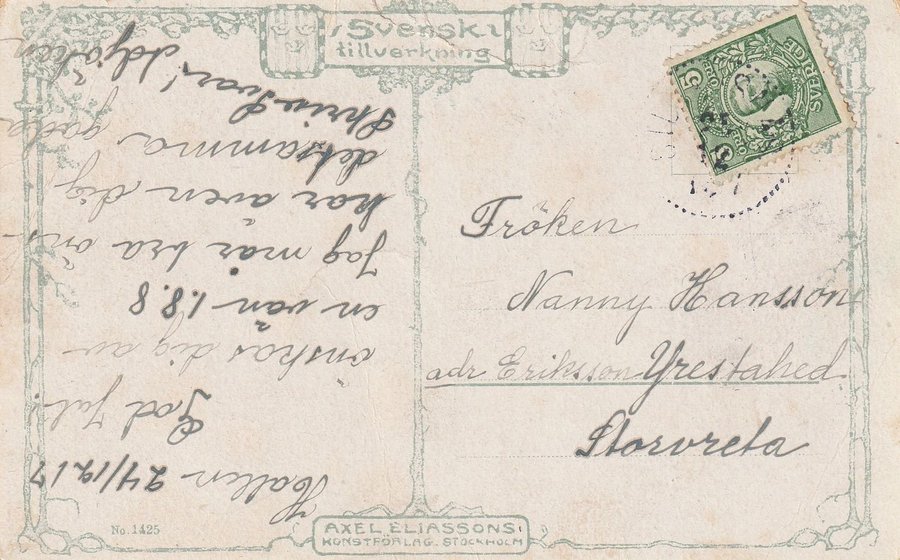 Svensk
tillverkning
SVERIGE
5 ÖRE 5
Fröken
Nanny Hansson
adr Eriksson Yrestahed
Storvreta
Hallen 24/12 17
God Jul!
önskas dig av
en vän 1.8.8
Jag mår bra öns-
kar även dig
detsamma
Skriv Svar!
No. 1425
AXEL ELIASSONS
KONSTFÖRLAG. STOCKHOLM